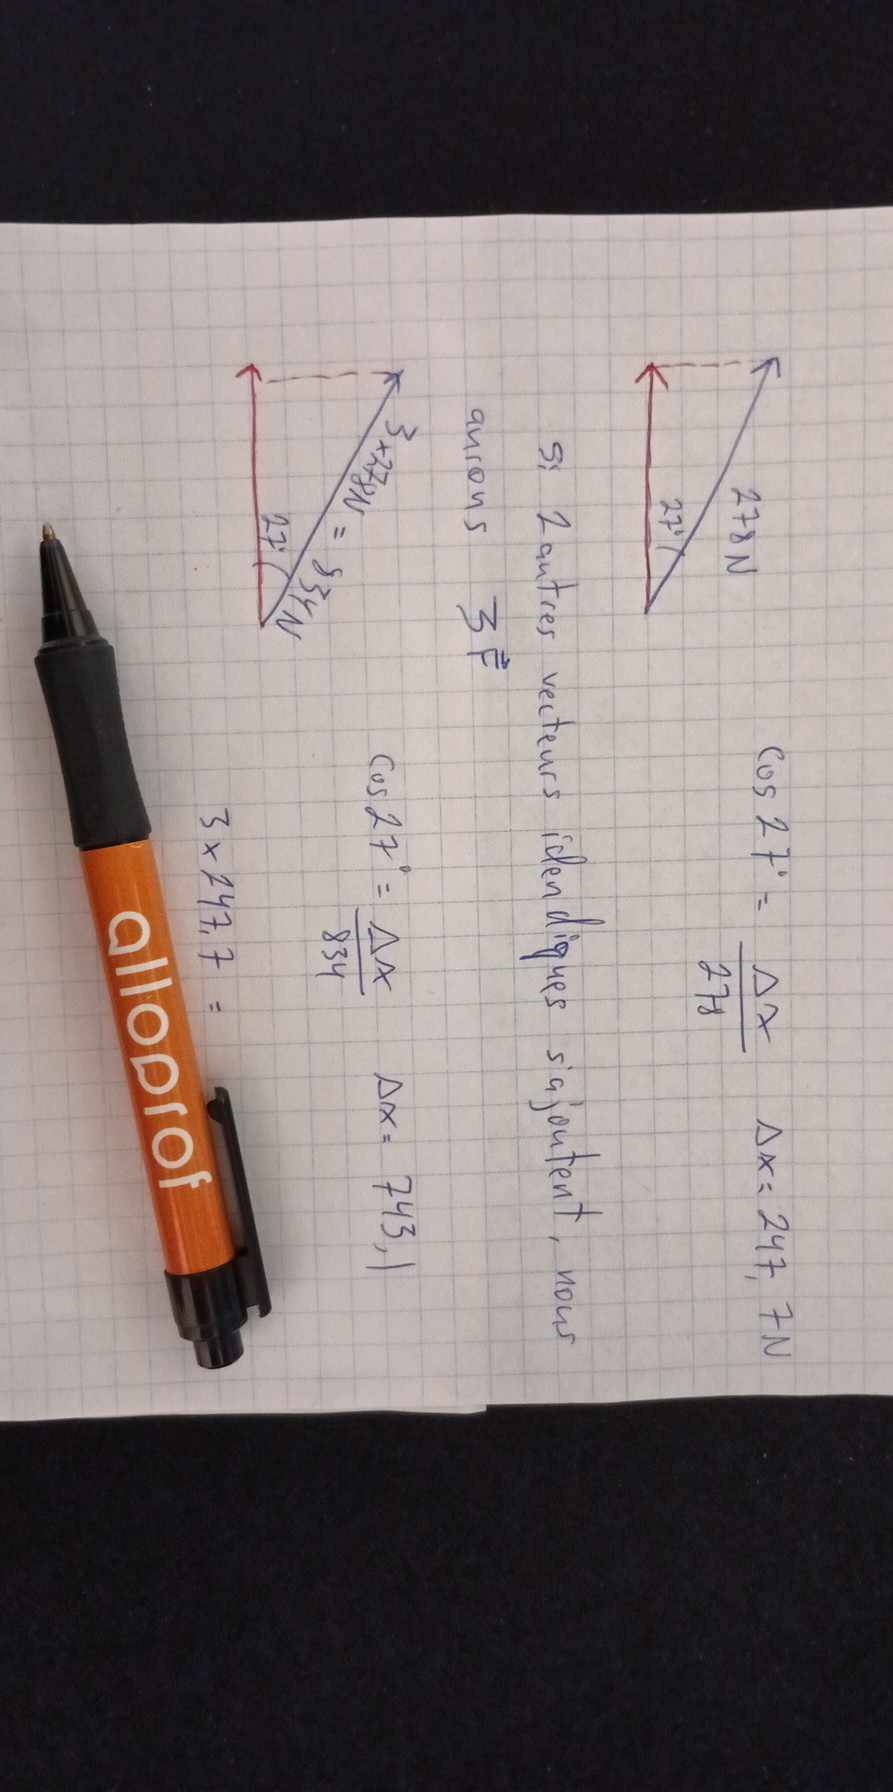 278 N
27°
Cos 27° = Δx / 278
Δx = 247,7 N
Si 2 autres vecteurs idendiques s'ajoutent, nous
aurions 3F⃗
3 x 278N = 834 N
27°
Cos 27° = Δx / 834
Δx = 743,1
3 x 247,7 =
alloprof